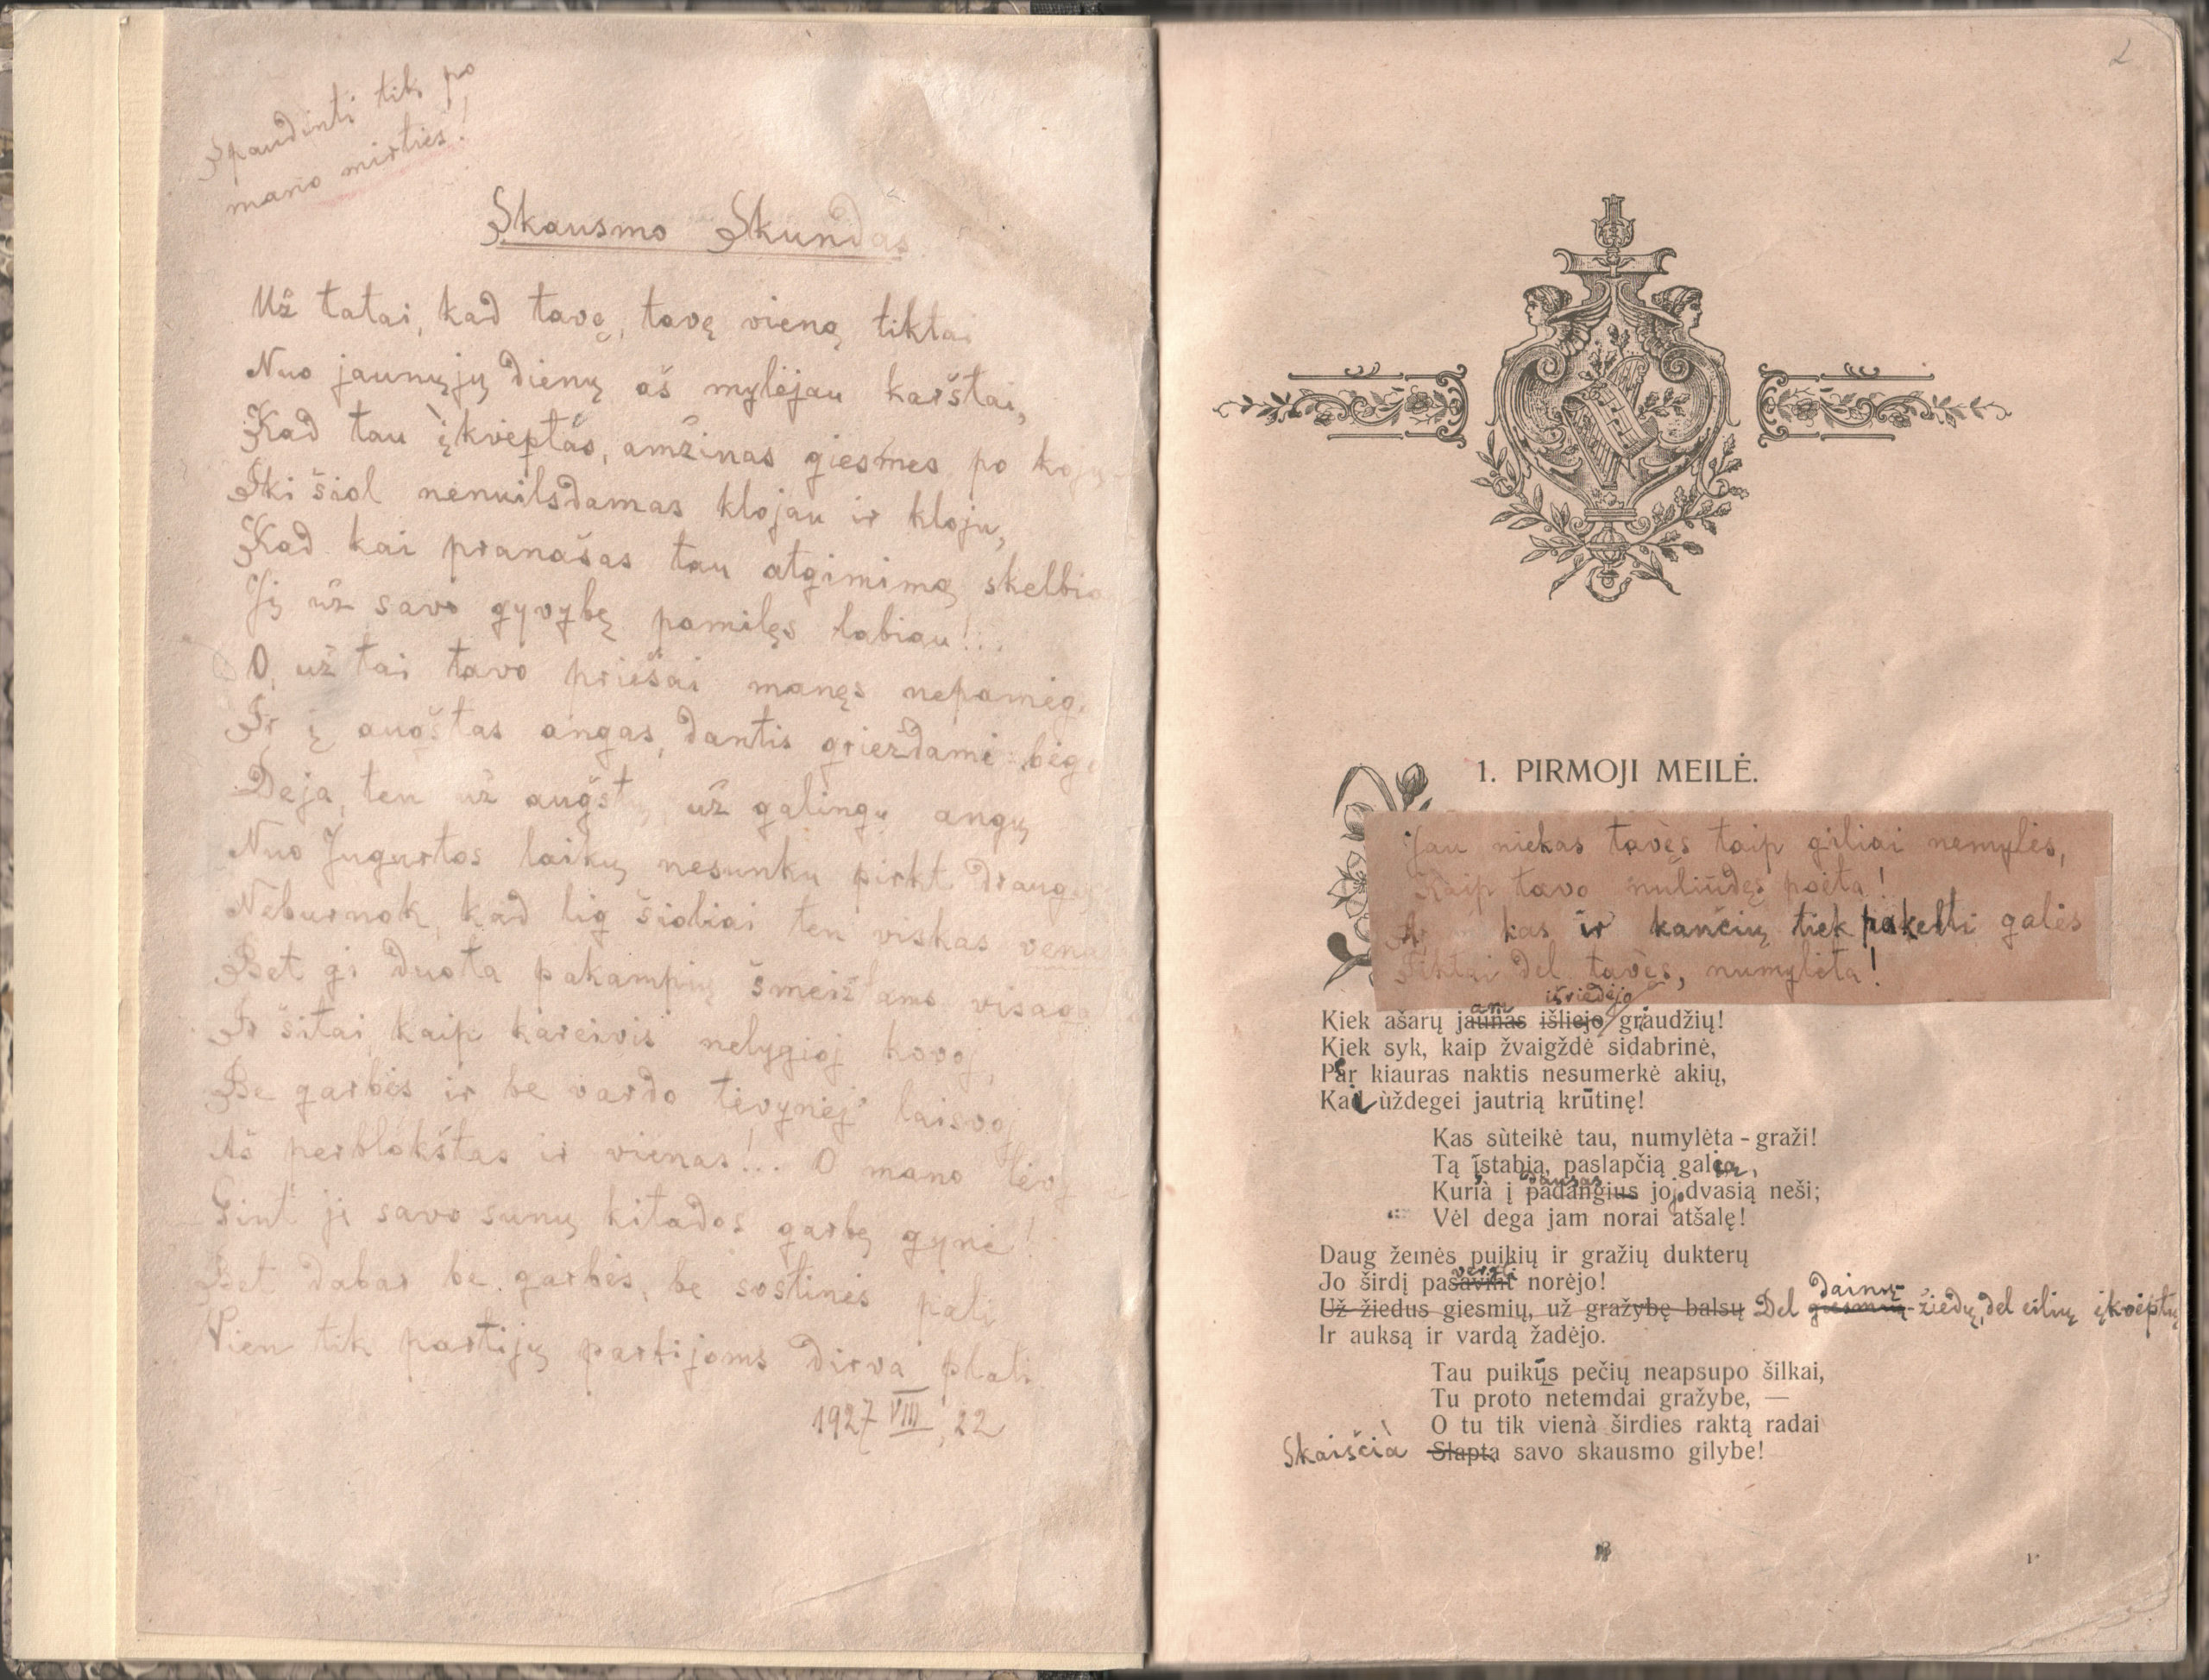 Spaudinti tik po
mano mirties!
Skausmo Skundas
Už tatai, kad tavę, tavę vieną tiktai
Nuo jaunųjų dienų aš mylėjau karštai,
Kad tau įkvėptas, amžinas giesmes po kojų
Iki šiol nenuilsdamas klojau ir kloju,
Kad kai pranašas tau atgimimą skelbia
Jį už savo gyvybę pamilęs labiau!...
O, už tai tavo priešai manęs nepamėg
Ir į augštas angas, dantis grieždami bėg
Deja, ten už augštų, už galingų angų
Nuo Jugurtos laikų nesunku pirkt draug
Neburnok, kad lig šioliai ten viskas vena
Bet gi duota pakampių šmeižtams visag
Ir šitai kaip kareivis nelygioj kovoj,
Be garbės ir be vardo tėvynėj laisvoj
Aš perblokštas ir vienas!... O mano tėv
Gint ji savo sunų kitados garbę gynė!
Bet dabar be garbės, be sostinės pati
Vien tik partijų partijoms dirva plati
1927 VIII, 22
2
1. PIRMOJI MEILĖ.
Jau niekas tavęs taip giliai nemylės,
Kaip tavo nuliūdęs poėta!
Ar kas ir kančių tiek pakelti galės
Tiktai del tavęs, numylėta!
am išriedėjo
Kiek ašarų jaunas išliejo graudžių!
Kiek syk, kaip žvaigždė sidabrinė,
Per kiauras naktis nesumerkė akių,
Kad ùždegei jautrią krūtinę!
Kas sùteikė tau, numylėta-graži!
Tą įstabią, paslapčią galią,
dausas
Kurià į padangius jojo dvasią neši;
Vėl dega jam norai atšalę!
Daug žemės puikių ir gražių dukterų
vergti
Jo širdį pasavint norėjo!
dainų
Už žiedus giesmių, už gražybę balsų Del giesmių žiedų, del eilių įkvėptų
Ir auksą ir vardą žadėjo.
Tau puikųs pečių neapsupo šilkai,
Tu proto netemdai gražybe, —
O tu tik vienà širdies raktą radai
Skaisčià Slapta savo skausmo gilybe!
1*